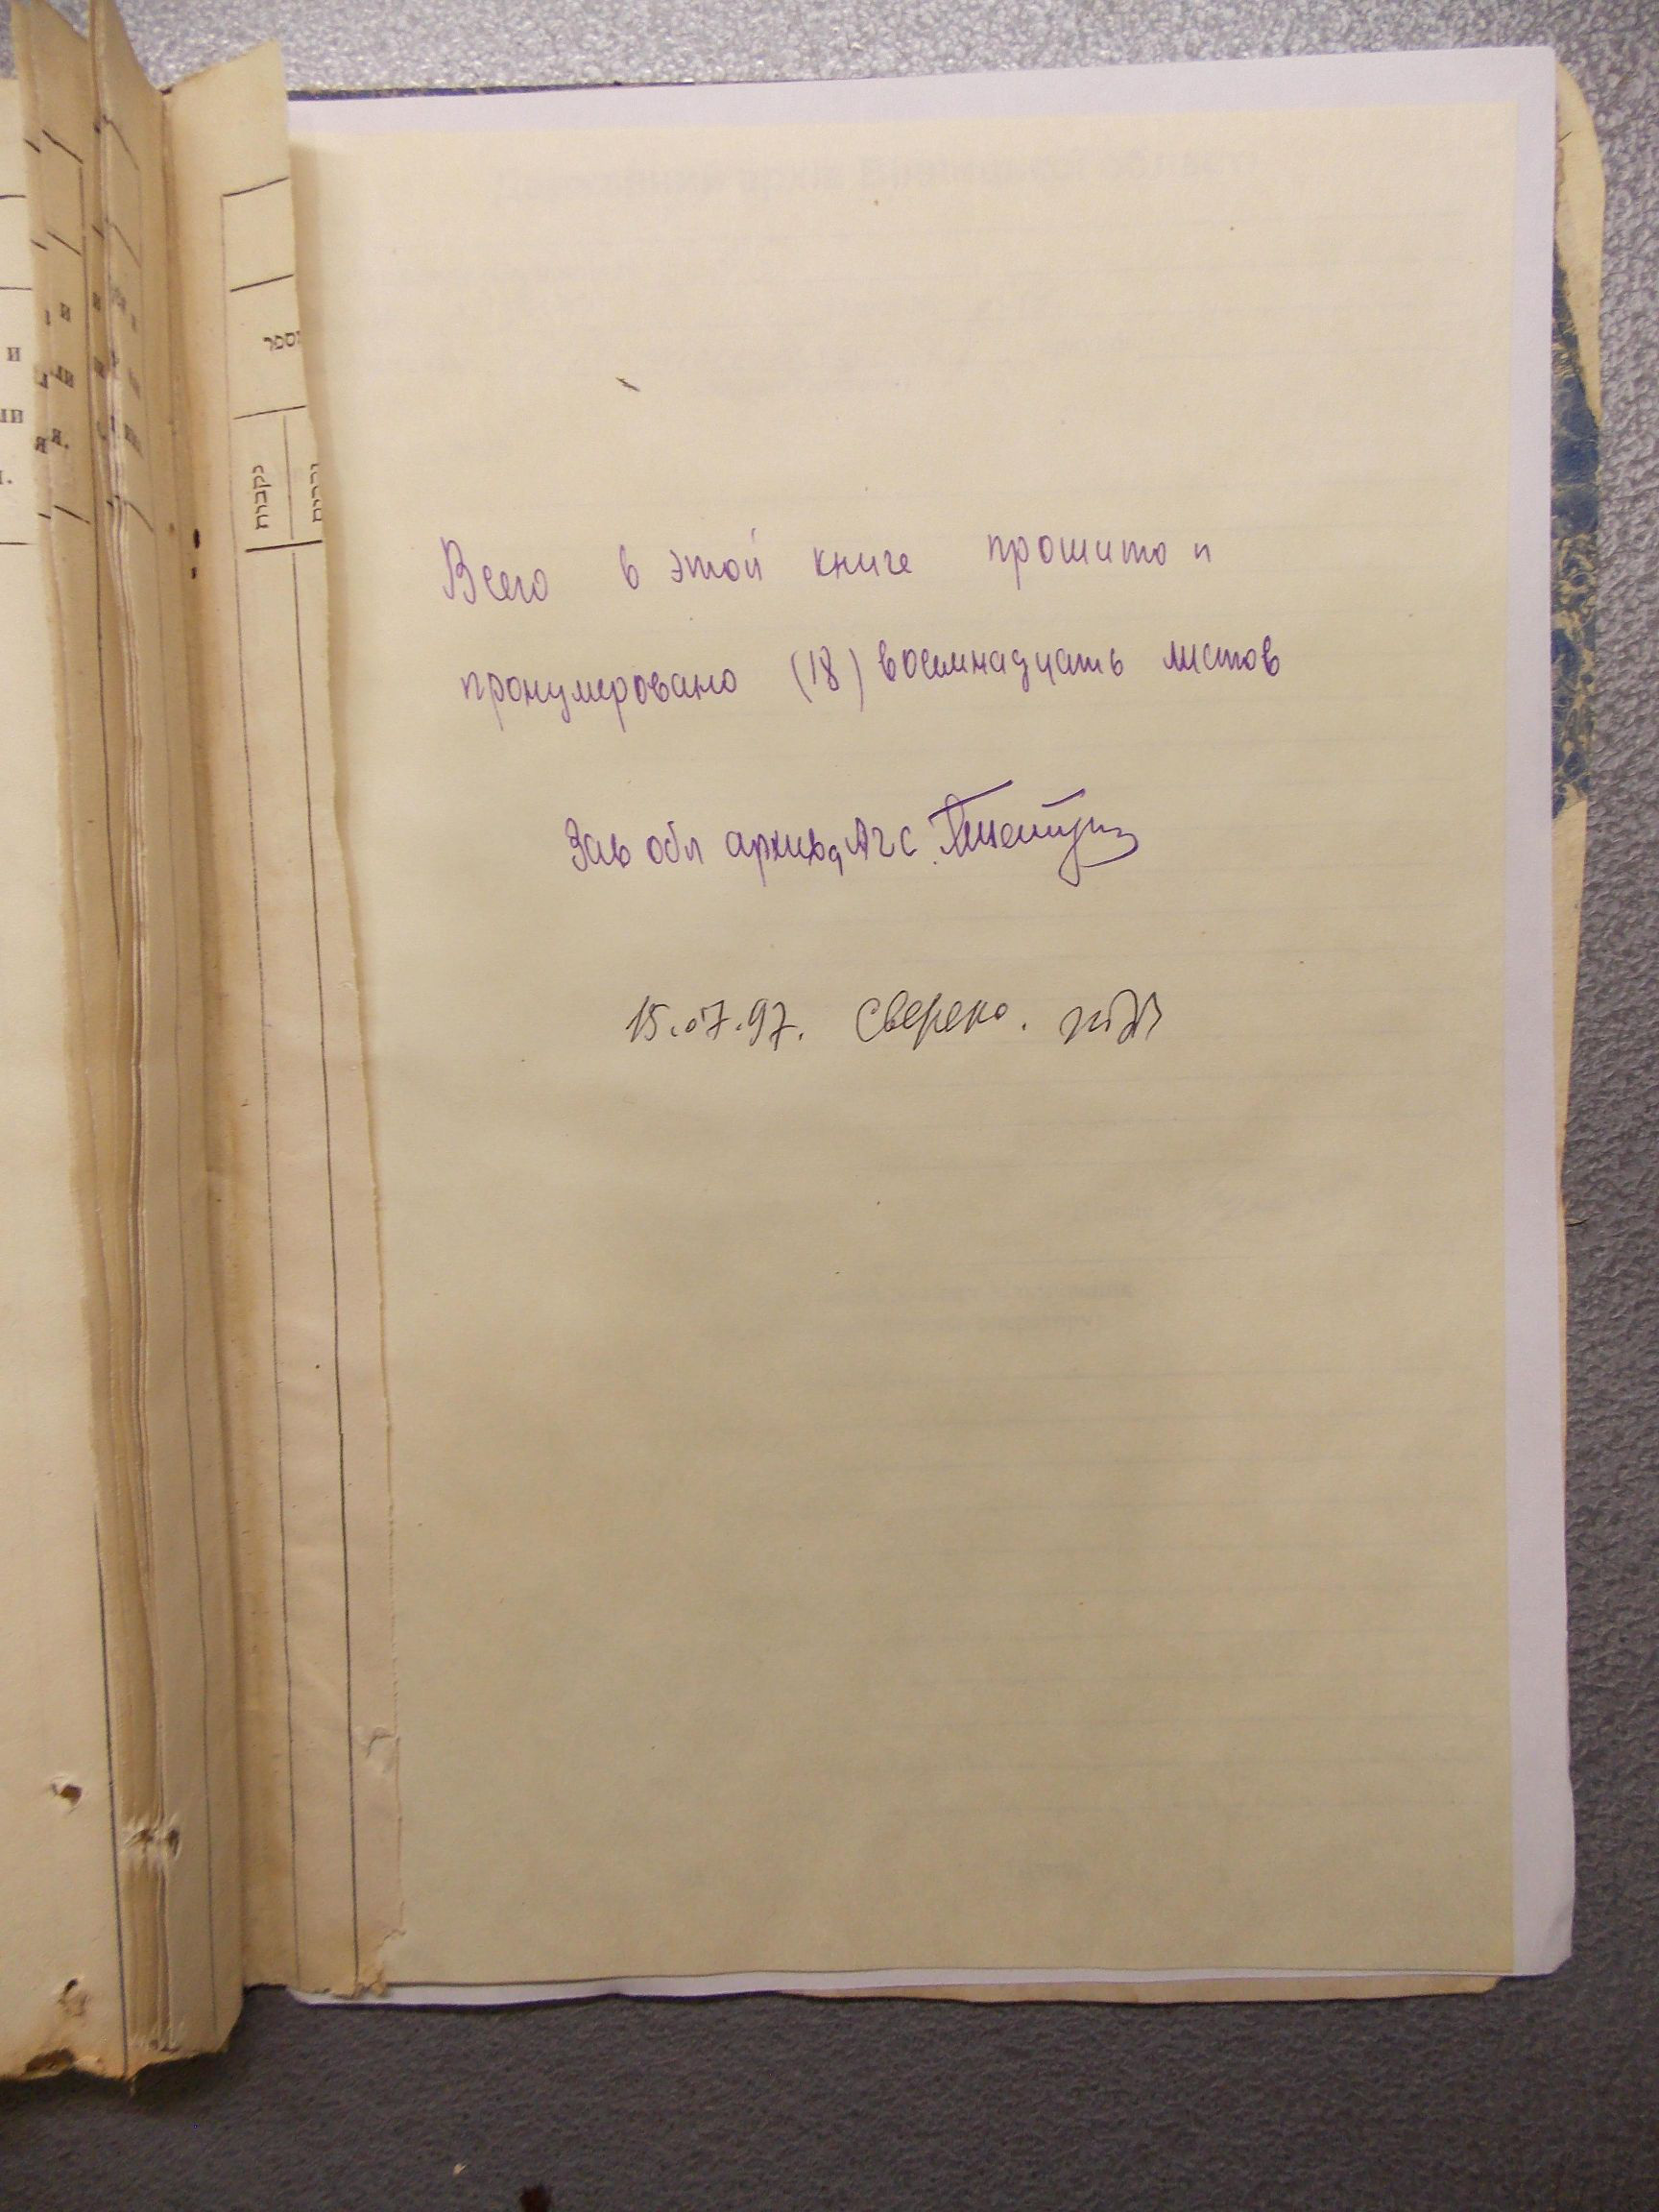 и
ли
и.
מספר
נקבות
זכרים
Всего в этой книге прошито и
пронумеровано (18) восемнадцать листов
Зав обл архива АГС
15.07.97. Сверено.